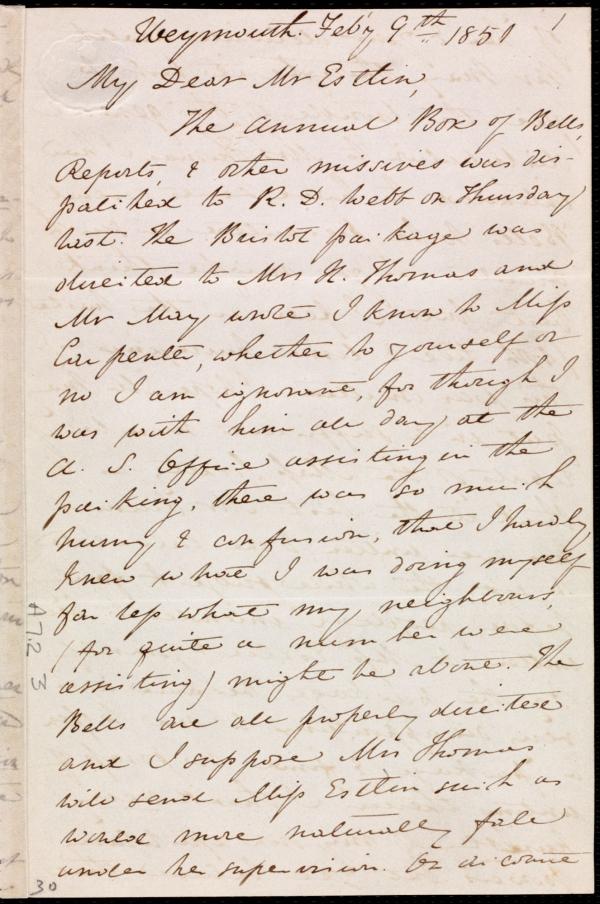 Weymouth. Feb'y 9th 1851
1
My Dear Mr Estlin,
The annual Box of Bells,
Reports, & other missives was dis-
patched to R. D. Webb on Thursday
last. The Bristol package was
directed to Mrs H. Thomas and
Mr May wrote I know to Miss
Carpenter, whether to yourself or
no I am ignorant, for though I
was with him all day at the
A. S. Office assisting in the
packing, there was so much
hurry & confusion, that I hardly
knew what I was doing myself
far less what my neighbours,
(for quite a number were
assisting) might be about. The
Bells are all properly directed
and I suppose Mrs Thomas
will send Miss Estlin such as
would more naturally fall
under her supervision. On account
A 7.2 3
30